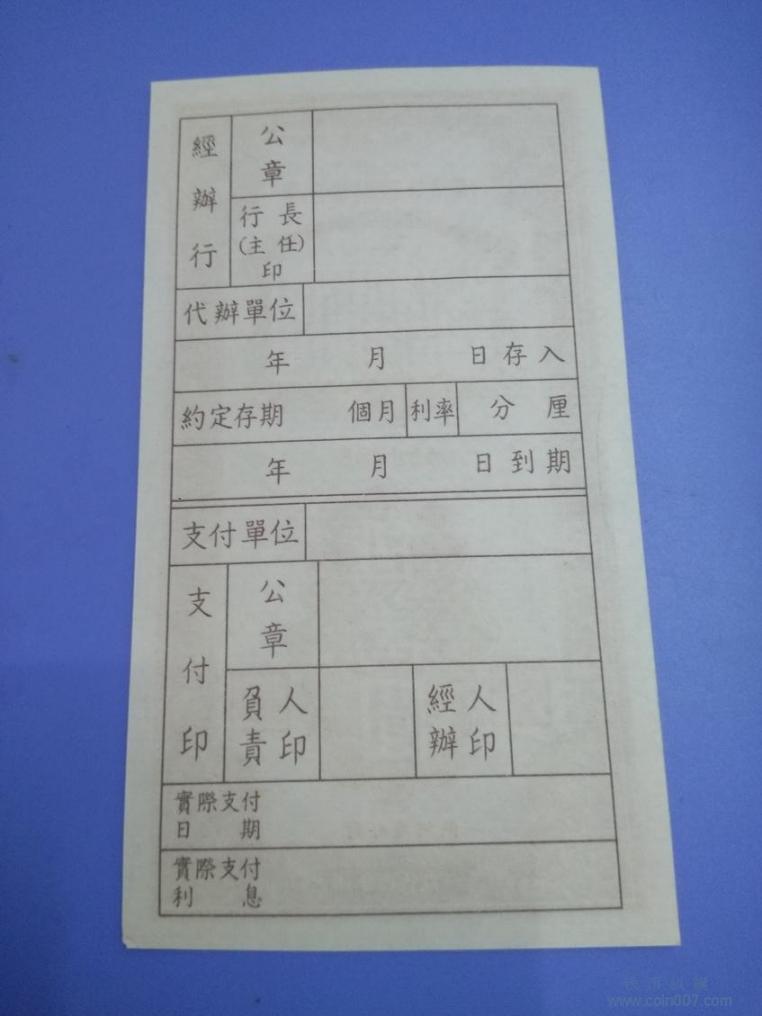 經辦行
公章
行長
(主任)
印
代辦單位
年 月 日存入
約定存期 個月 利率 分 厘
年 月 日到期
支付單位
支付印
公章
負責人印
經辦人印
實際支付
日期
實際支付
利息
www.coin007.com